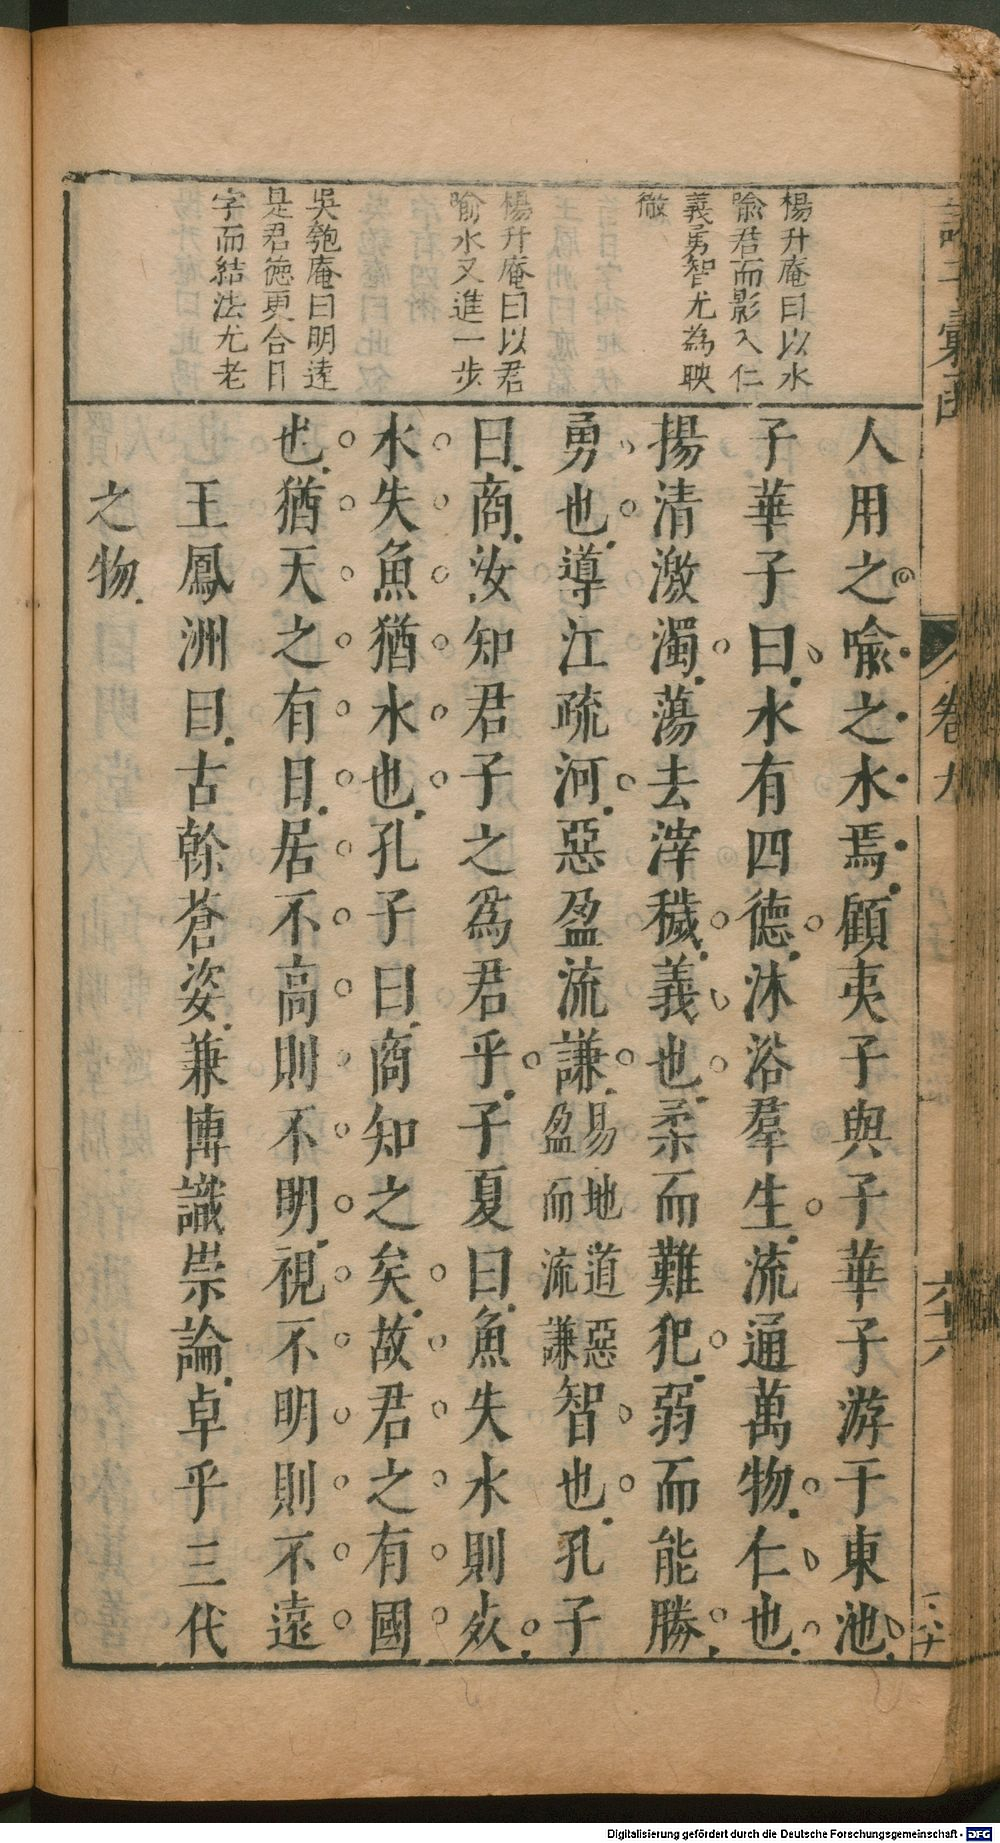 楊升庵曰以水
喻君而影入仁
義勇智尤為映
徹
楊升庵曰以君
喻水又進一步
吳匏庵曰明遠
是君德更合日
字而結法尤老
人用之喻之水焉顧夷子與子華子游于東池
子華子曰水有四德沐浴羣生流通萬物仁也
揚清激濁蕩去滓穢義也柔而難犯弱而能勝
勇也導江疏河惡盈流謙易地道惡盈而流謙智也孔子
曰商汝知君子之為君乎子夏曰魚失水則死
水失魚猶水也孔子曰商知之矣故君之有國
也猶天之有日居不高則不明視不明則不遠
王鳳洲曰古幹蒼姿兼博識崇論卓乎三代
之物
卷九
六十六
Digitalisierung gefördert durch die Deutsche Forschungsgemeinschaft - DFG